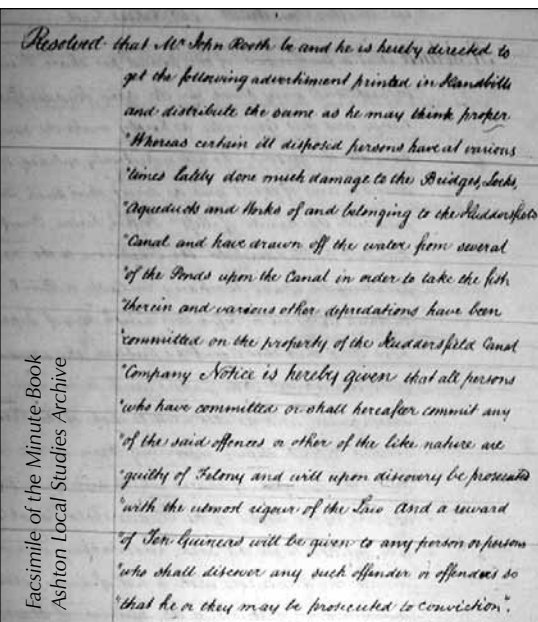 Resolved that Mr John Rooth be and he is hereby directed to
get the following advertisment printed in Handbills
and distribute the same as he may think proper
"Whereas certain ill disposed persons have at various
"times lately done much damage to the Bridges, Locks,
"Aqueducts and Works of and belonging to the Huddersfield
"Canal and have drawn off the water from several
"of the Ponds upon the Canal in order to take the fish
"therein and various other depredations have been
"committed on the property of the Huddersfield Canal
"Company Notice is hereby given that all persons
"who have committed or shall hereafter commit any
"of the said offences or other of the like nature are
"guilty of Felony and will upon discovery be prosecuted
"with the utmost rigour of the Law And a reward
"of Ten Guineas will be given to any person or persons
"who shall discover any such offender or offenders so
"that he or they may be prosecuted to conviction".
Facsimile of the Minute-Book
Ashton Local Studies Archive